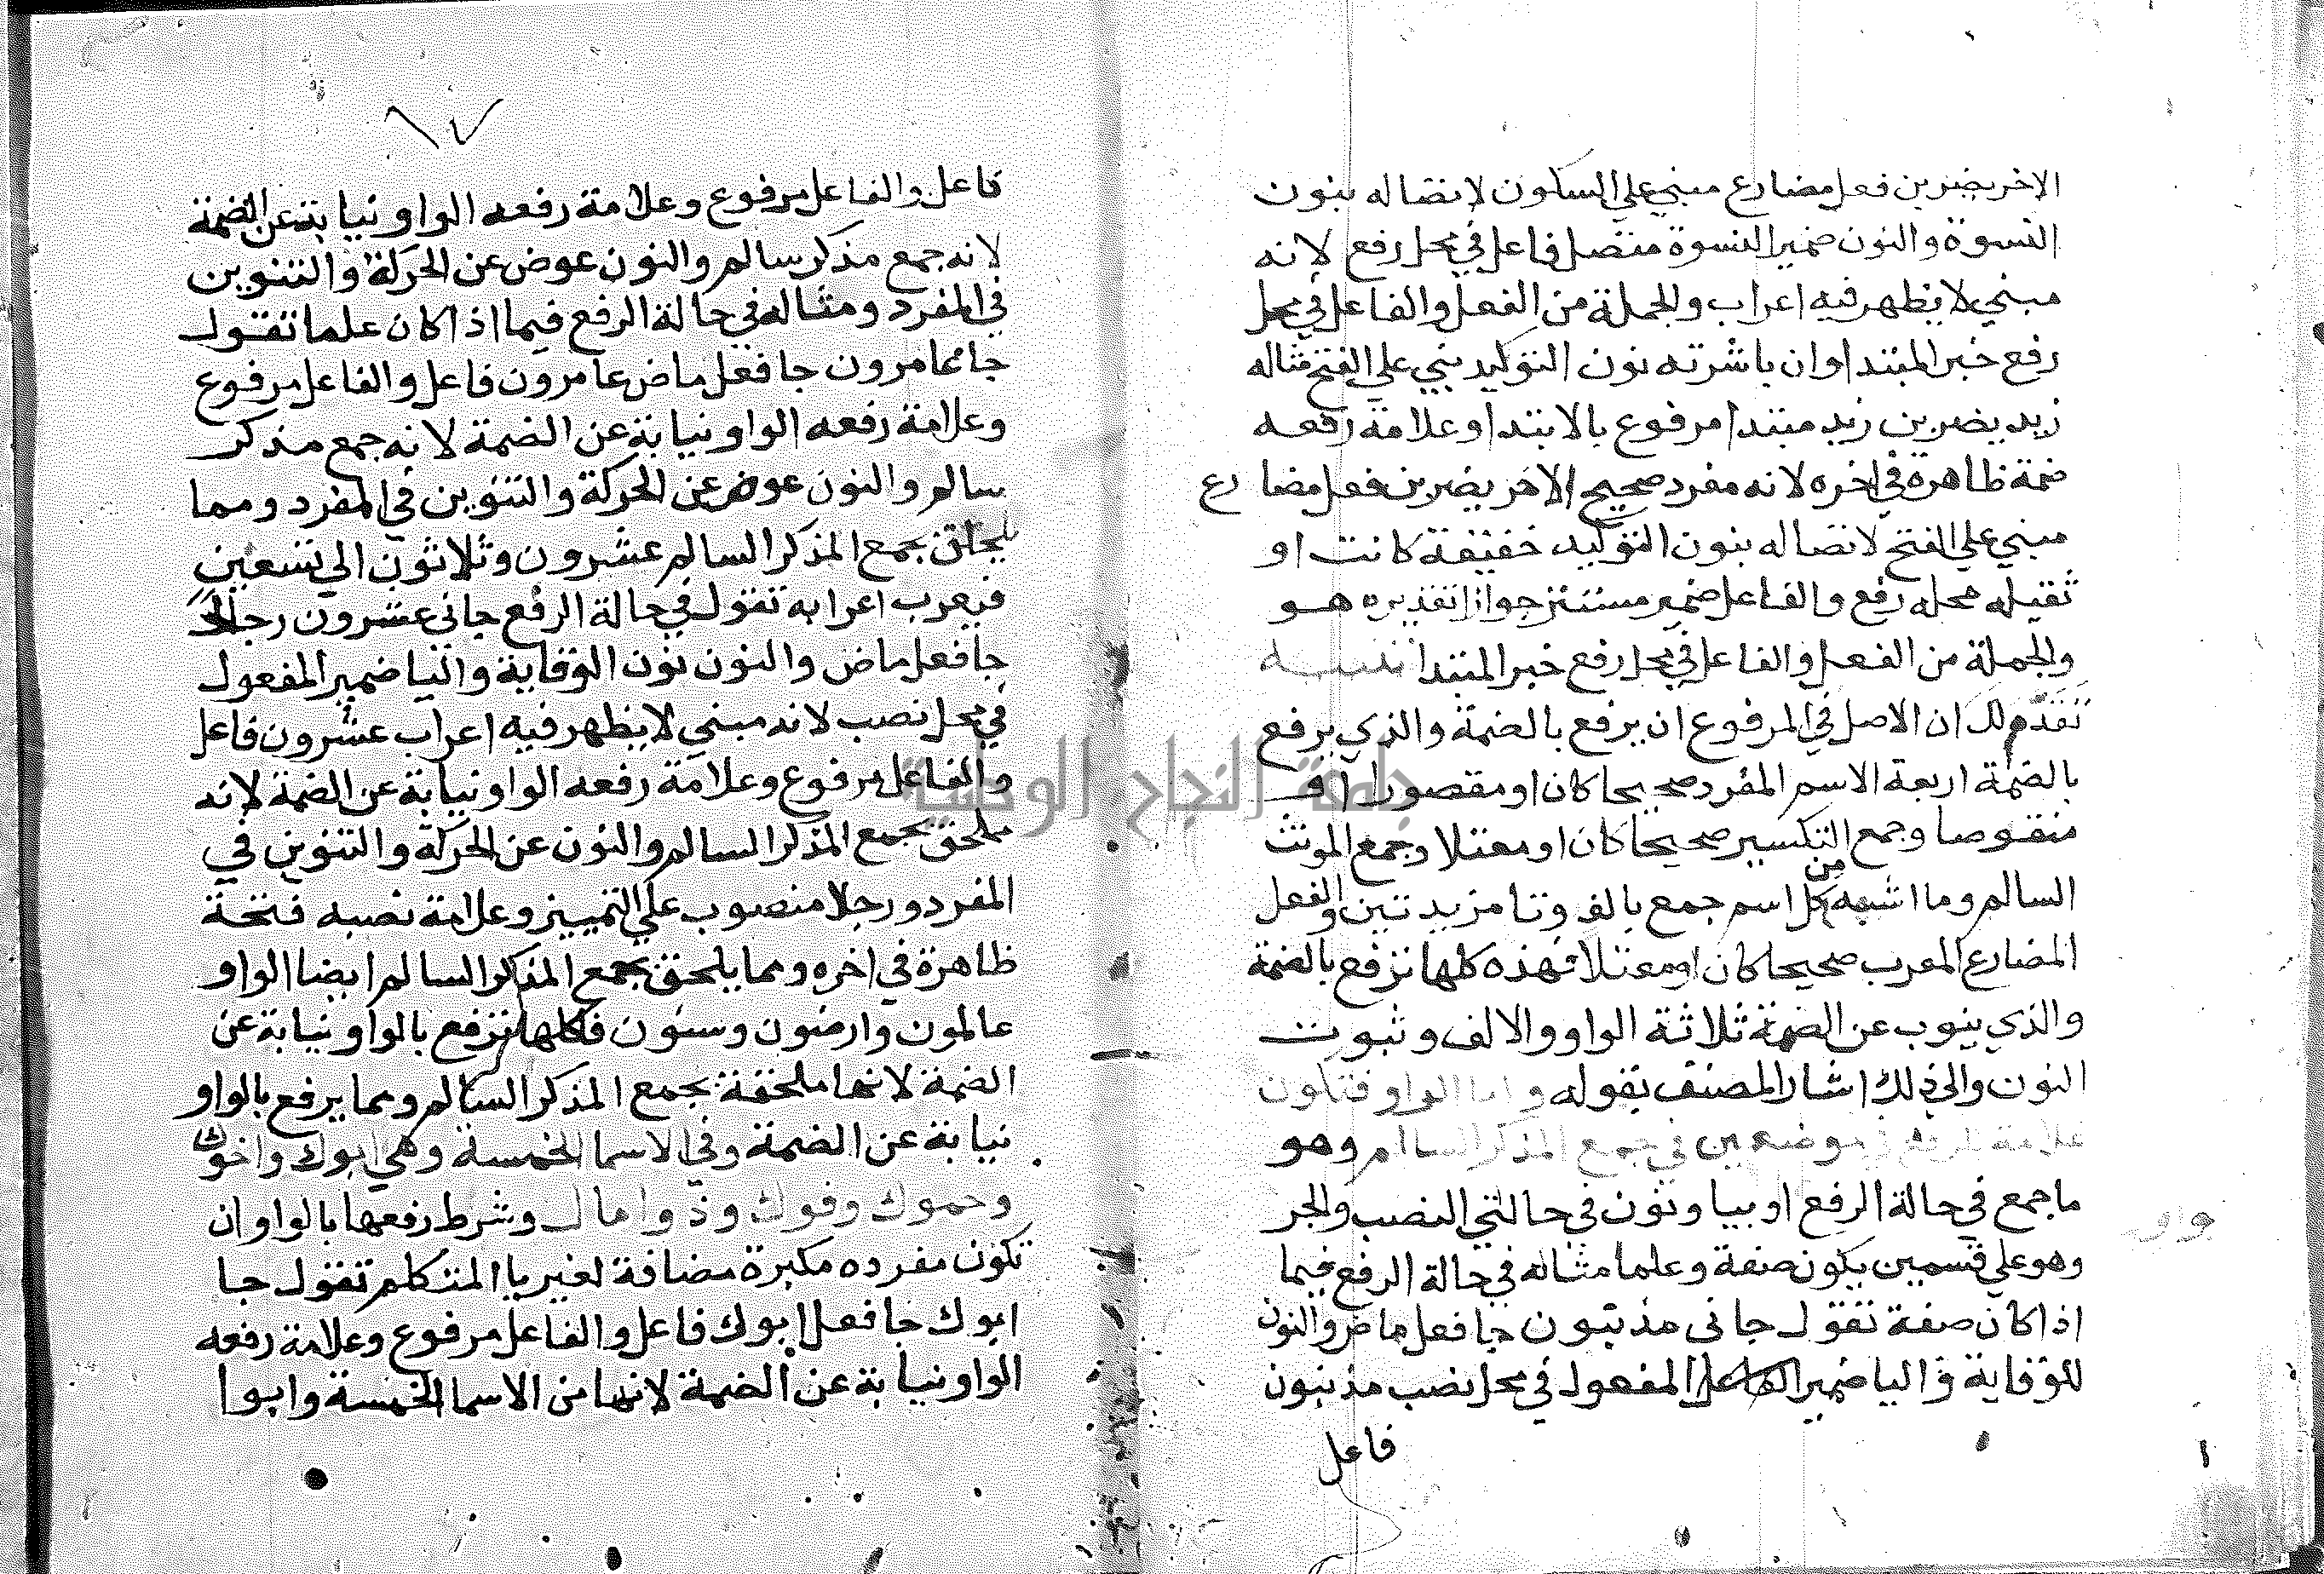 الاخر يضربن فعل مضارع مبني علي السكون لاتصاله بنون
النسوة والنون ضمير النسوة متصل فاعل في محل رفع لانه
مبني لا يظهر فيه اعراب والجملة من الفعل والفاعل في محل
رفع خبر المبتدا وان باشرته نون التوكيد بني علي الفتح مثاله
زيد يضربن زيد مبتدا مرفوع بالابتدا وعلامة رفعه
ضمة ظاهرة في اخره لانه مفرد صحيح الاخر يضربن فعل مضارع
مبني علي الفتح لاتصاله بنون التوكيد خفيفة كانت او
ثقيله محله رفع والفاعل ضمير مستتر جوازا تقديره هو
والجملة من الفعل والفاعل في محل رفع خبر المبتدا تنبيه
تقدم لك ان الاصل في المرفوع ان يرفع بالضمة والذي يرفع
بالضمة اربعة الاسم المفرد صحيحا كان او مقصورا او
منقوصا وجمع التكسير صحيحا كان او معتلا وجمع المونث
السالم وما اشبهه من كل اسم جمع بالف وتا مزيدتين والفعل
المضارع المعرب صحيحا كان او معتلا فهذه كلها ترفع بالضمة
والذي ينوب عن الضمة ثلاثة الواو والالف وثبوت
النون والي ذلك اشار المصنف بقوله واما الواو فتكون
علامة للرفع في موضعين في جمع المذكر السالم وهو
ما جمع في حالة الرفع او بيا ونون في حالتي النصب والجر
واو
وهو علي قسمين يكون صفة وعلما مثاله في حالة الرفع فيما
اذا كان صفة تقول جاني مذنبون جا فعل ماض والنون
للوقاية واليا ضمير المفعول في محل نصب مذنبون
فاعل
١٧
فاعل والفاعل مرفوع وعلامة رفعه الواو نيابة عن الضمة
لانه جمع مذكر سالم والنون عوض عن الحركة والتنوين
في المفرد ومثاله في حالة الرفع فيما اذا كان علما تقول
جا عامرون جا فعل ماض عامرون فاعل والفاعل مرفوع
وعلامة رفعه الواو نيابة عن الضمة لانه جمع مذكر
سالم والنون عوض عن الحركة والتنوين في المفرد ومما
يلحق بجمع المذكر السالم عشرون وثلاثون الي تسعين
فيعرب اعرابه تقول في حالة الرفع جاني عشرون رجلا
جا فعل ماض والنون نون الوقاية واليا ضمير المفعول
في محل نصب لانه مبني لا يظهر فيه اعراب عشرون فاعل
والفاعل مرفوع وعلامة رفعه الواو نيابة عن الضمة لانه
ملحق بجمع المذكر السالم والنون عن الحركة والتنوين في
المفرد ورجلا منصوب علي التمييز وعلامة نصبه فتحة
ظاهرة في اخره ومما يلحق بجمع المذكر السالم ايضا الواو
عالمون وارضون وسنون فكلها ترفع بالواو نيابة عن
الضمة لانها ملحقة بجمع المذكر السالم ومما يرفع بالواو
نيابة عن الضمة وفي الاسما الخمسة وهي ابوك واخوك
وحموك وفوك وذوا مال وشرط رفعها بالواو ان
تكون مفرده مكبرة مضافة لغير يا المتكلم تقول جا
ابوك جا فعل ابوك فاعل والفاعل مرفوع وعلامة رفعه
الواو نيابة عن الضمة لانها من الاسما الخمسة وابوا
جامعة النجاح الوطنية